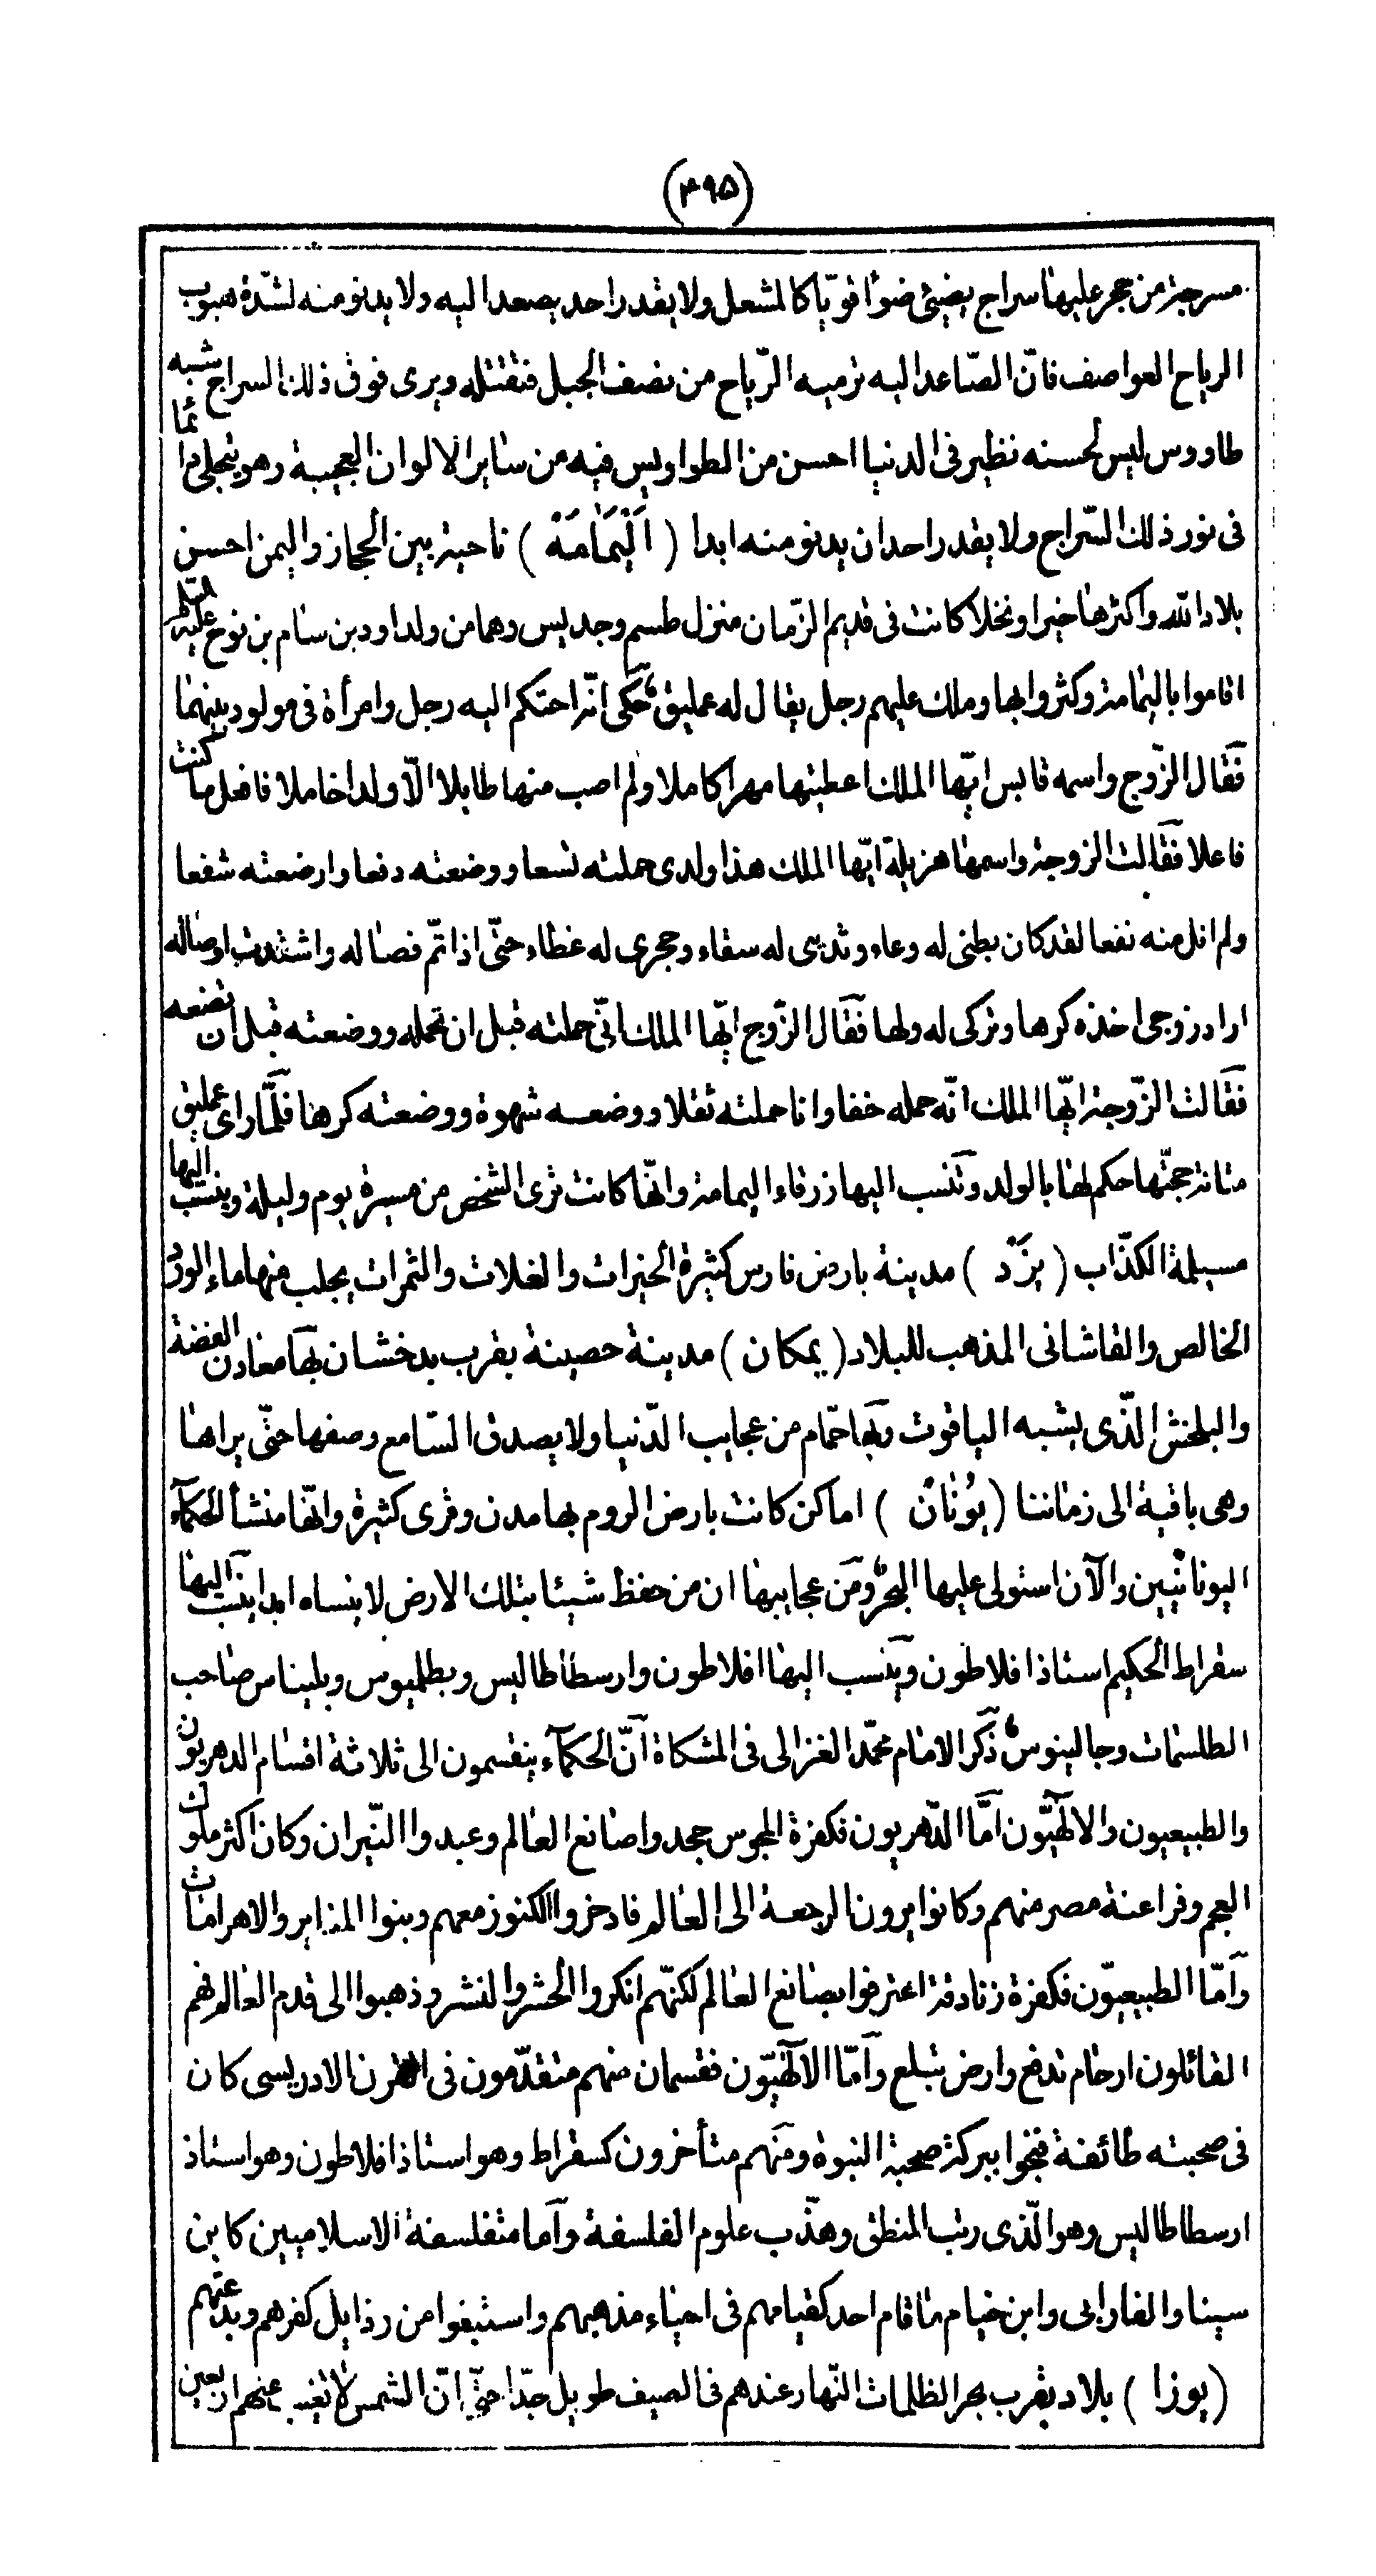 (۳۹۵)
مسرجة من حجر عليها سراج يضيئ ضوأ قويّا كالمشعل ولا يقدر احد يصعد اليه ولا يدنو منه لشدّة هبوب
الرياح العواصف فانّ الصّاعد اليه ترميه الرّياح من نصف الجبل فتقتله ويرى فوق ذلك السراج شبه
طاووس ليس لحسنه نظير فى الدنيا احسن من الطواويس فيه من ساير الالوان العجيبة وهو يتجلى دائما
فى نور ذلك السّراج ولا يقدر احد ان يدنو منه ابدا ( اَلْيَمَامَهْ ) ناحية بين الحجاز واليمن احسن
بلاد الله واكثرها خيرا ونخلا كانت فى قديم الزّمان منزل طسم وجديس وهما من ولد اود بن سام بن نوح عليه السلم
اقاموا باليمامة وكثروا بها وملك عليهم رجل يقال له عمليق حكى انّه احتكم اليه رجل وامرأة فى مولود بينهما
فقال الزّوج واسمه قابس ايّها الملك اعطيتها مهرا كاملا ولم اصب منها طايلا الّا ولدا خاملا فافعل ما كنت
فاعلا فقالت الزوجة واسمها هزيلة ايّها الملك هذا ولدى حملته تسعا ووضعته دفعا وارضعته شفعا
ولم انل منه نفعا لقد كان بطنى له وعاء وثديى له سقاء وحجرى له غطاء حتّى اذا تمّ فصاله واشتدت اوصاله
اراد زوجى اخذه كرها وتركى له ولها فقال الزّوج ايّها الملك انّى حملته قبل ان تحمله ووضعته قبل ان تضعه
فقالت الزّوجة ايّها الملك انّه حمله خفا وانا حملته ثقلا ووضعه شهوة ووضعته كرها فلمّا راى عمليق
متانة حجّتها حكم لها بالولد وتنسب اليها زرقاء اليمامة وانّها كانت ترى الشخص من مسيرة يوم وليلة وينسب اليها
مسيلمة الكذّاب ( يَزَدْ ) مدينة بارض فارس كثيرة الخيرات والغلات والثمرات يجلب منها ماء الورد
الخالص والقاشانى المذهب للبلاد ( يمكان ) مدينة حصينة بقرب بدخشان بها معادن الفضة
والبلخش الّذى يشبه الياقوت وبها حمّام من عجايب الدّنيا ولا يصدق السّامع وصفها حتّى يراها
وهى باقية الى زماننا ( يُونَانْ ) اماكن كانت بارض الروم بها مدن وقرى كثيرة وانّها منشأ الحكمآء
اليونانيّين والآن استولى عليها البحر ومن عجايبها ان من حفظ شيئا بتلك الارض لا ينساه ابدا ينسب اليها
سقراط الحكيم استاذ افلاطون وينسب اليها افلاطون وارسطاطاليس وبطلميوس وبليناس صاحب
الطلسمات وجالينوس ذكر الامام محمّد الغزالى فى المشكاة انّ الحكمآء ينقسمون الى ثلاثة اقسام الدهريون
والطبيعيون والالهيّون امّا الدّهريون فكفرة المجوس جحدوا صانع العالم وعبدوا النّيران وكان اكثر ملوك
العجم وفراعنة مصر منهم وكانوا يرون الرجعة الى العالم فادخروا الكنوز معهم وبنوا المذابر والاهرامات
وامّا الطبيعيّون فكفرة زنادقة اعترفوا بصانع العالم لكنّهم انكروا الحشر والنشر وذهبوا الى قدم العالم فهم
القائلون ارحام تدفع وارض تبلع وامّا الالهيّون فقسمان منهم متقدّمون فى القرن الادريسى كان
فى صحبته طائفة فنجوا ببركة صحبة النبوة ومنهم متأخرون كسقراط وهو استاذ افلاطون وهو استاذ
ارسطاطاليس وهو الّذى رتب المنطق وهذّب علوم الفلسفة واما متفلسفة الاسلاميين كابن
سينا والفارابى وابن خيام ما قام احد كقيامهم فى احياء مذهبهم واستبقوا من رذايل كفرهم وبدعتهم
( يوزا ) بلاد بقرب بحر الظلمات النّهار عندهم فى الصيف طويل جدّا حتّى انّ الشمس لا تغيب عنهم اربعين